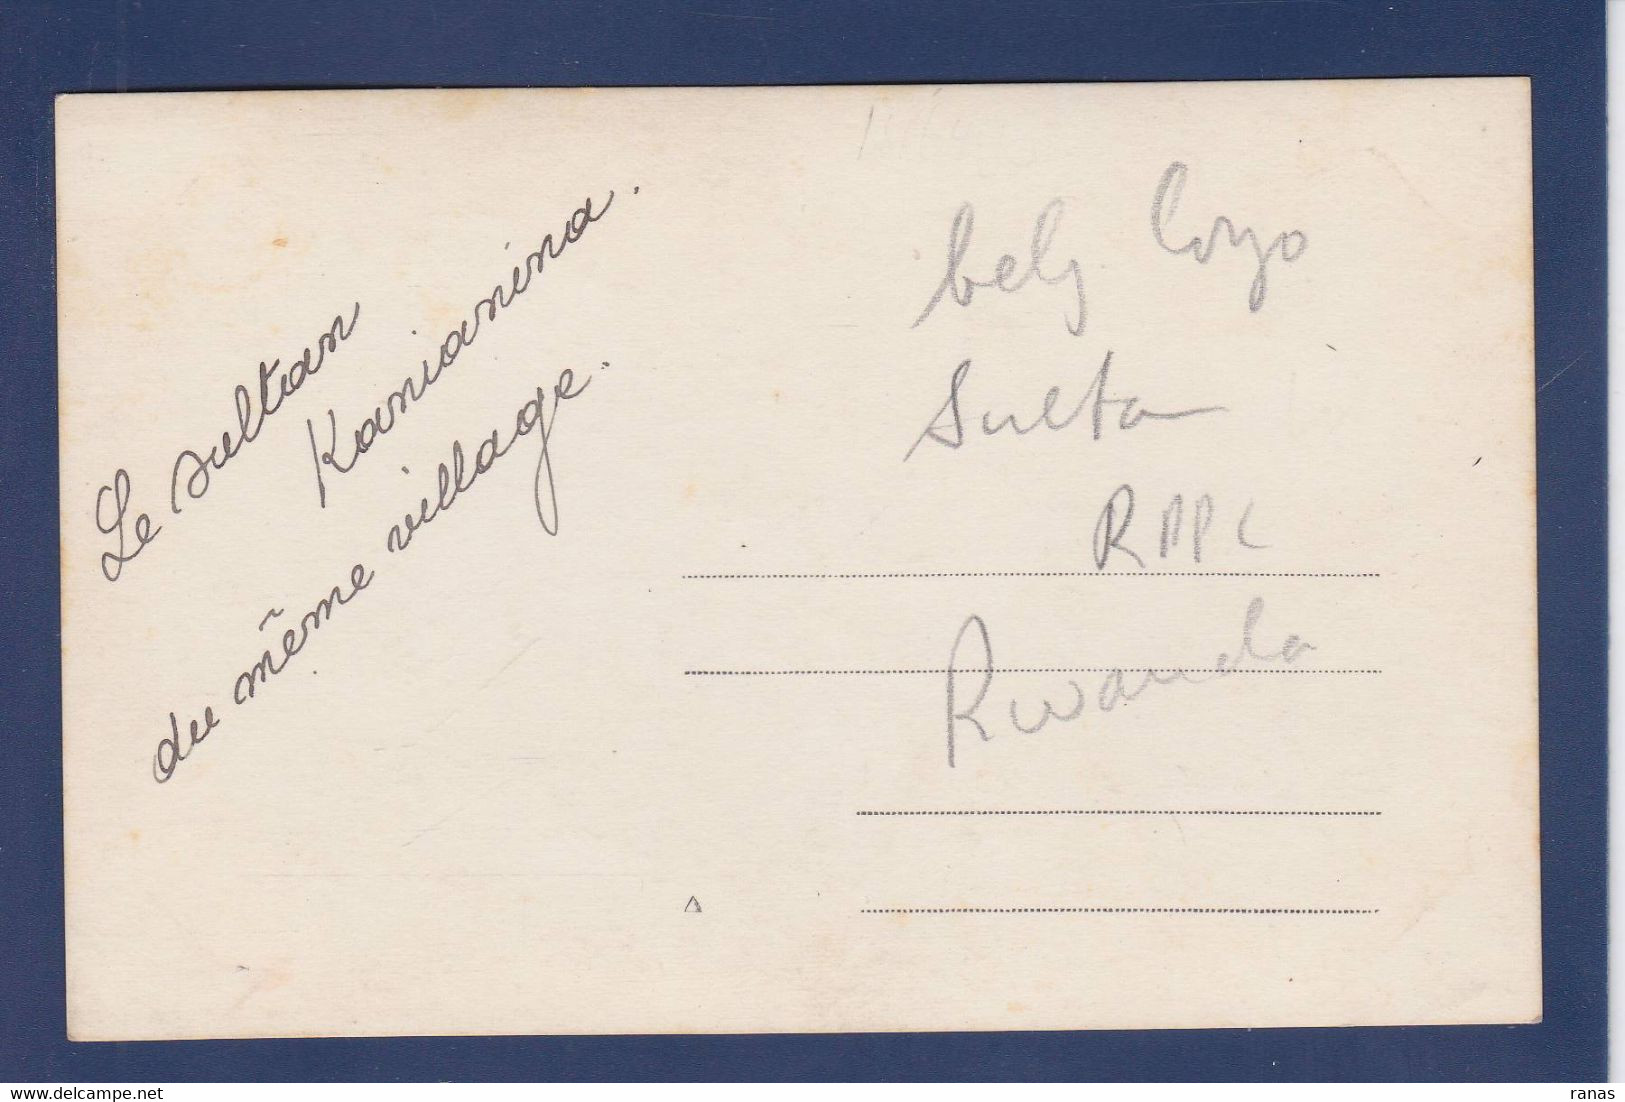 Le sultan
Kanianina.
du même village.
belg Congo
Sultan
RPPC
Rwanda
ranas
delcampe.net